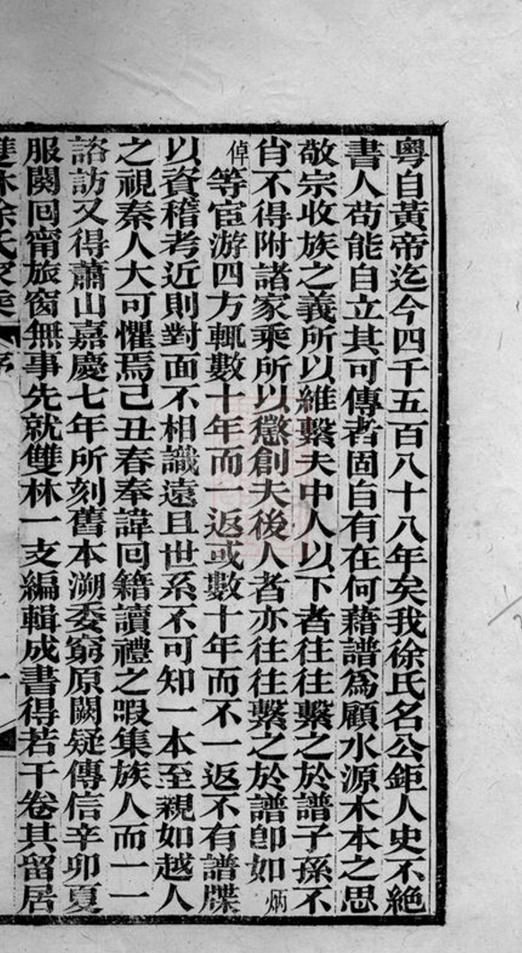 粵自黃帝迄今四千五百八十八年矣我徐氏名公鉅人史不絶
書人苟能自立其可傳者固自有在何藉譜爲顧水源木本之思
敬宗收族之義所以維繫夫中人以下者往往繫之於譜子孫不
肖不得附諸家乘所以懲創夫後人者亦往往繫之於譜卽如炳
倬等宦游四方輒數十年而一返或數十年而不一返不有譜牒
以資稽考近則對面不相識遠且世系不可知一本至親如越人
之視秦人大可懼焉己丑春奉諱回籍讀禮之暇集族人而一一
諮訪又得蕭山嘉慶七年所刻舊本溯委窮原闕疑傳信辛卯夏
服闋回甯旅窗無事先就雙林一支編輯成書得若干卷其留居
雙林徐氏家乘 序 一